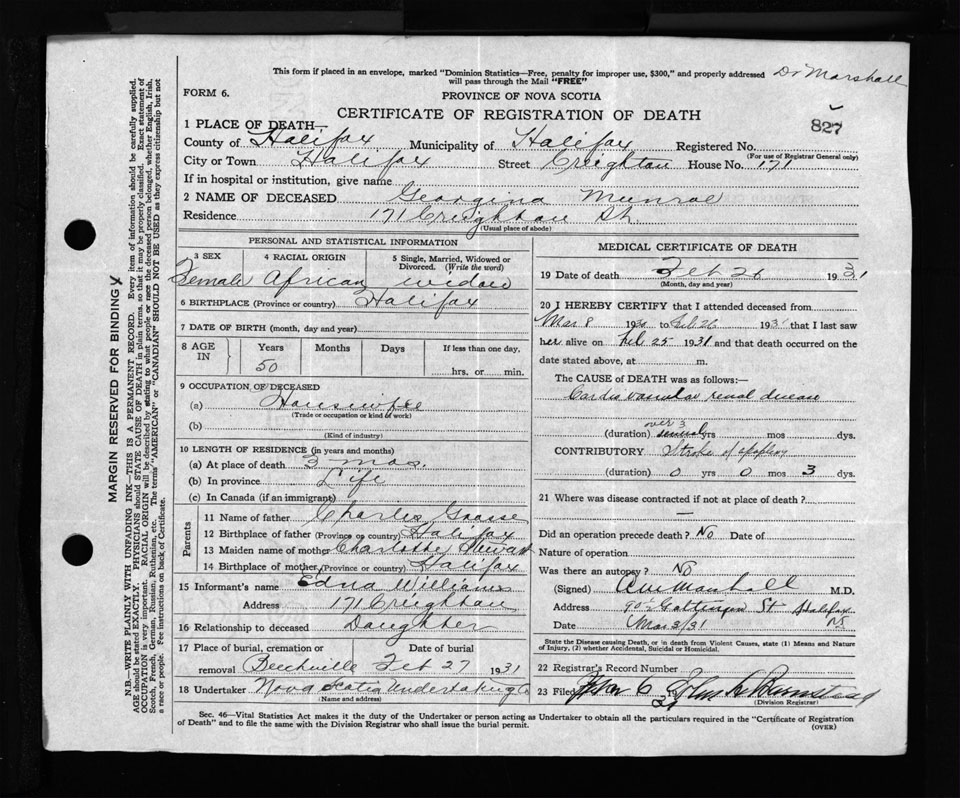 This form if placed in an envelope, marked "Dominion Statistics—Free, penalty for improper use, $300," and properly addressed Dr Marshall
will pass through the Mail "FREE"
FORM 6.
PROVINCE OF NOVA SCOTIA
CERTIFICATE OF REGISTRATION OF DEATH
827
1 PLACE OF DEATH—
County of Halifax Municipality of Halifax Registered No.
(For use of Registrar General only)
City or Town Halifax Street Creighton House No. 171
If in hospital or institution, give name
2 NAME OF DECEASED Georgina Munroe
Residence 171 Creighton St.
(Usual place of abode)
PERSONAL AND STATISTICAL INFORMATION
3 SEX 4 RACIAL ORIGIN 5 Single, Married, Widowed or Divorced. (Write the word)
Female African widow
6 BIRTHPLACE (Province or country) Halifax
7 DATE OF BIRTH (month, day and year)
8 AGE IN Years Months Days If less than one day,
50 hrs. or min.
9 OCCUPATION OF DECEASED
(a) Housewife
(Trade or occupation or kind of work)
(b)
(Kind of industry)
10 LENGTH OF RESIDENCE (in years and months)
(a) At place of death 3 mos.
(b) In province Life
(c) In Canada (if an immigrant)
Parents
11 Name of father Charles
12 Birthplace of father (Province or country) Halifax
13 Maiden name of mother Charlotte Stewart
14 Birthplace of mother Halifax
15 Informant's name Edna Williams
Address 171 Creighton
16 Relationship to deceased Daughter
17 Place of burial, cremation or removal Date of burial
Beechville Feb 27 1931
18 Undertaker Nova Scotia Undertaking Co
(Name and address)
MEDICAL CERTIFICATE OF DEATH
19 Date of death Feb 26 1931
(Month, day and year)
20 I HEREBY CERTIFY that I attended deceased from
Mar 8 19 to Feb 26 193 that I last saw
her alive on Feb 25 1931 and that death occurred on the
date stated above, at m.
The CAUSE OF DEATH was as follows:—
Cardio vascular renal disease
over 3
(duration) several yrs mos dys.
CONTRIBUTORY Stroke of apoplexy
(duration) 0 yrs 0 mos 3 dys.
21 Where was disease contracted if not at place of death?
—
Did an operation precede death? No Date of
Nature of operation
Was there an autopsy? No
(Signed) Marshall M.D.
Address 902 Gottingen St Halifax
NS
Date Mar 3/31
State the Disease causing Death, or in death from Violent Causes, state (1) Means and Nature of Injury, (2) whether Accidental, Suicidal or Homicidal.
22 Registrar's Record Number
23 Filed
(Division Registrar)
Sec. 46—Vital Statistics Act makes it the duty of the Undertaker or person acting as Undertaker to obtain all the particulars required in the "Certificate of Registration
of Death" and to file the same with the Division Registrar who shall issue the burial permit.
(OVER)
MARGIN RESERVED FOR BINDING
N.B.—WRITE PLAINLY WITH UNFADING INK—THIS IS A PERMANENT RECORD. Every item of information should be carefully supplied.
AGE should be stated EXACTLY. PHYSICIANS should STATE CAUSE OF DEATH in plain terms, so that it may be properly classified. Exact statement of
OCCUPATION is very important. RACIAL ORIGIN will be described by stating to what people or race the deceased person belonged, whether English, Irish,
Scotch, French, German, Russian, Ruthenian, etc. The terms "AMERICAN" or "CANADIAN" SHOULD NOT BE USED as they express citizenship but not
a race or people. Fee instructions on back of Certificate.